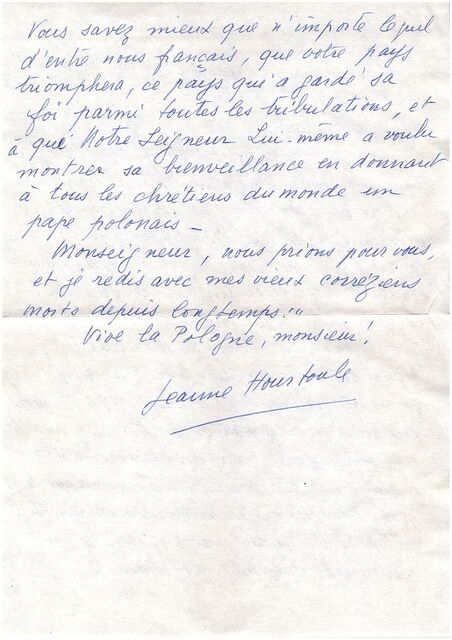 Vous savez mieux que n'importe lequel
d'entre nous français, que votre pays
triomphera, ce pays qui a gardé sa
foi parmi toutes les tribulations, et
à qui Notre Seigneur Lui-même a voulu
montrer sa bienveillance en donnant
à tous les chrétiens du monde un
pape polonais –
Monseigneur, nous prions pour vous,
et je redis avec mes vieux corréziens
morts depuis longtemps : "
Vive la Pologne, monsieur !
Jeanne Hourtoule